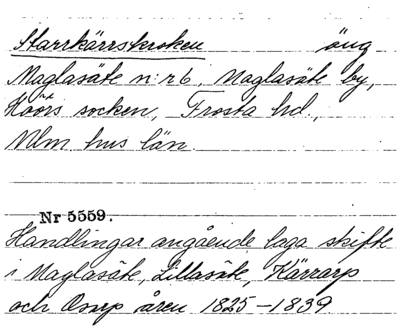 Starrkärrskroken äng
Maglasäte n:r 6, Maglasäte by,
Höörs socken, Frosta hd.,
Mlm. hus län
Nr 5559.
Handlingar angående laga skifte
i Maglasäte, Lillasäte, Kärrarp
och Osup åren 1825–1839